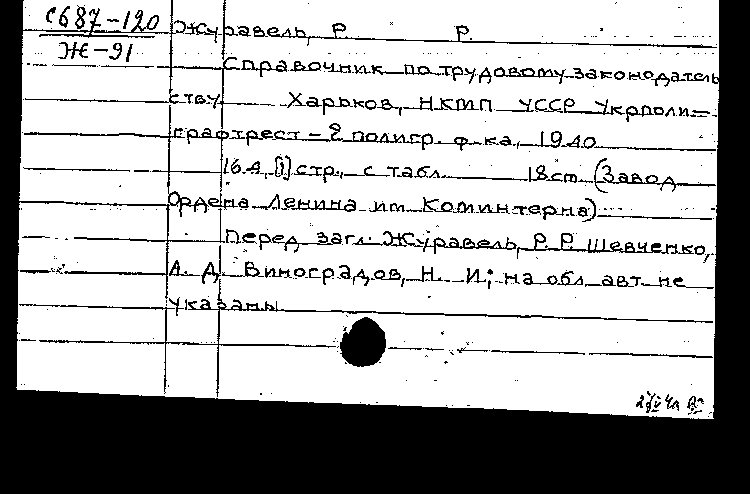 С687-120
Ж-91
Журавель, Р. Р.
Справочник по трудовому законодатель
ству Харьков, НКМП УССР Укрполи-
графтрест - 2 полигр. ф-ка, 1940
164, [1] стр., с табл. 18 см. (Завод
Ордена Ленина им Коминтерна)
Перед загл. Журавель, Р. Р. Шевченко,
А. Д. Виноградов, Н. И; на обл. авт. не
указаны